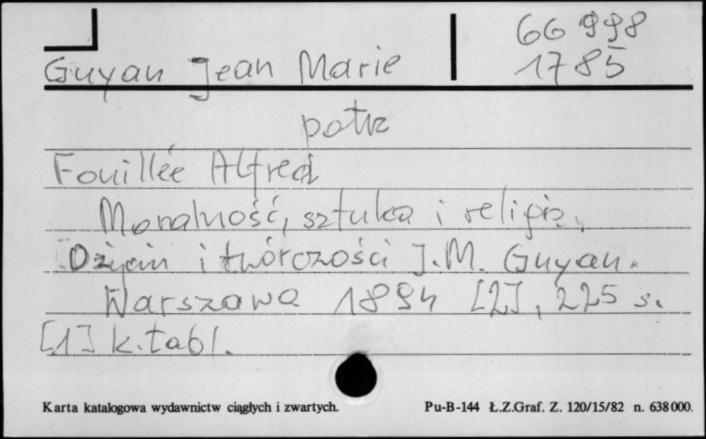 66 998
Guyau Jean Marie
1785
patrz
Fouillée Alfred
Moralność, sztuka i religia.
O życiu i twórczości J.M. Guyau.
Warszawa 1894 [2], 225 s.
[1] k. tabl.
Karta katalogowa wydawnictw ciągłych i zwartych.
Pu-B-144 Ł.Z.Graf. Z. 120/15/82 n. 638000.